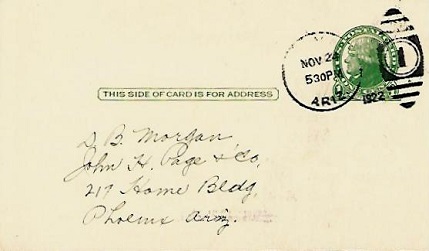 NOV 24
5 30 PM
ARIZ.
1922
1
THIS SIDE OF CARD IS FOR ADDRESS
B. Morgan
John H. Page & Co,
217 Home Bldg,
Phoenix Ariz.